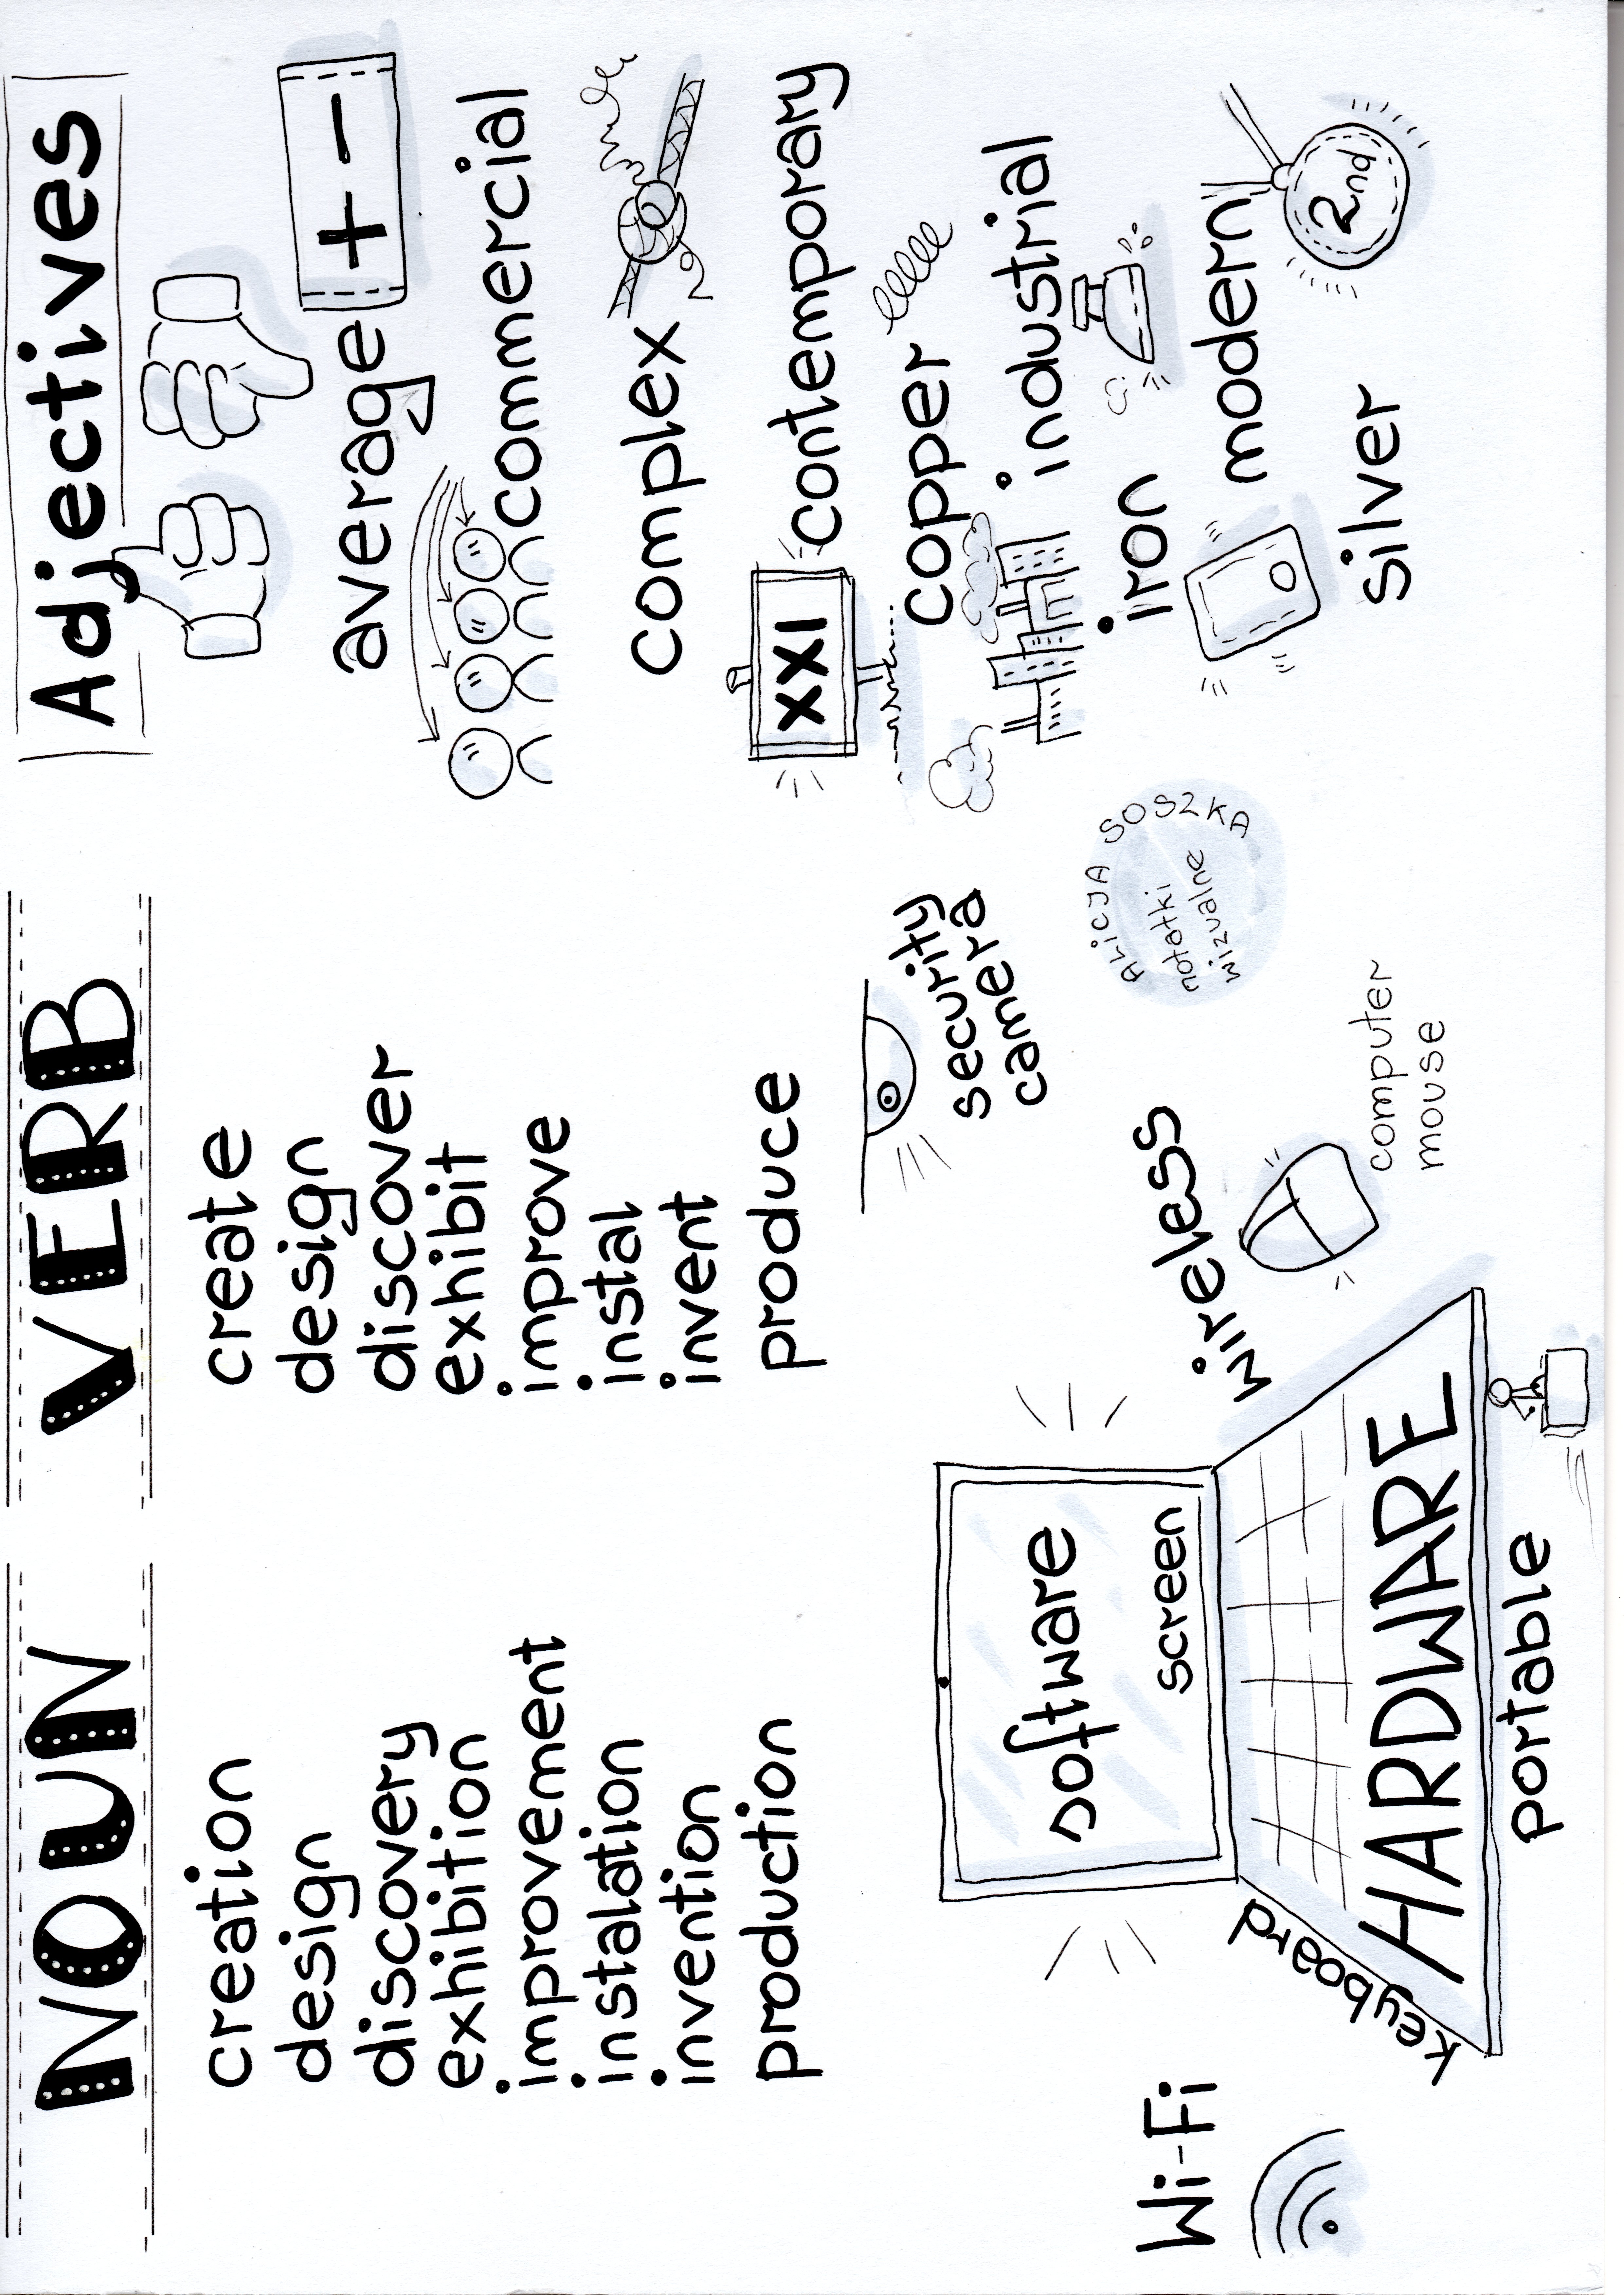 NOUN
creation
design
discovery
exhibition
improvement
instalation
invention
production
VERB
create
design
discover
exhibit
improve
instal
invent
produce
Adjectives
+ -
average
commercial
complex
XXI
contemporary
copper
industrial
iron
modern
2nd
silver
security
camera
ALICJA SOSZKA
notatki
wizualne
wireless
computer
mouse
software
screen
HARDWARE
keyboard
portable
Wi-Fi